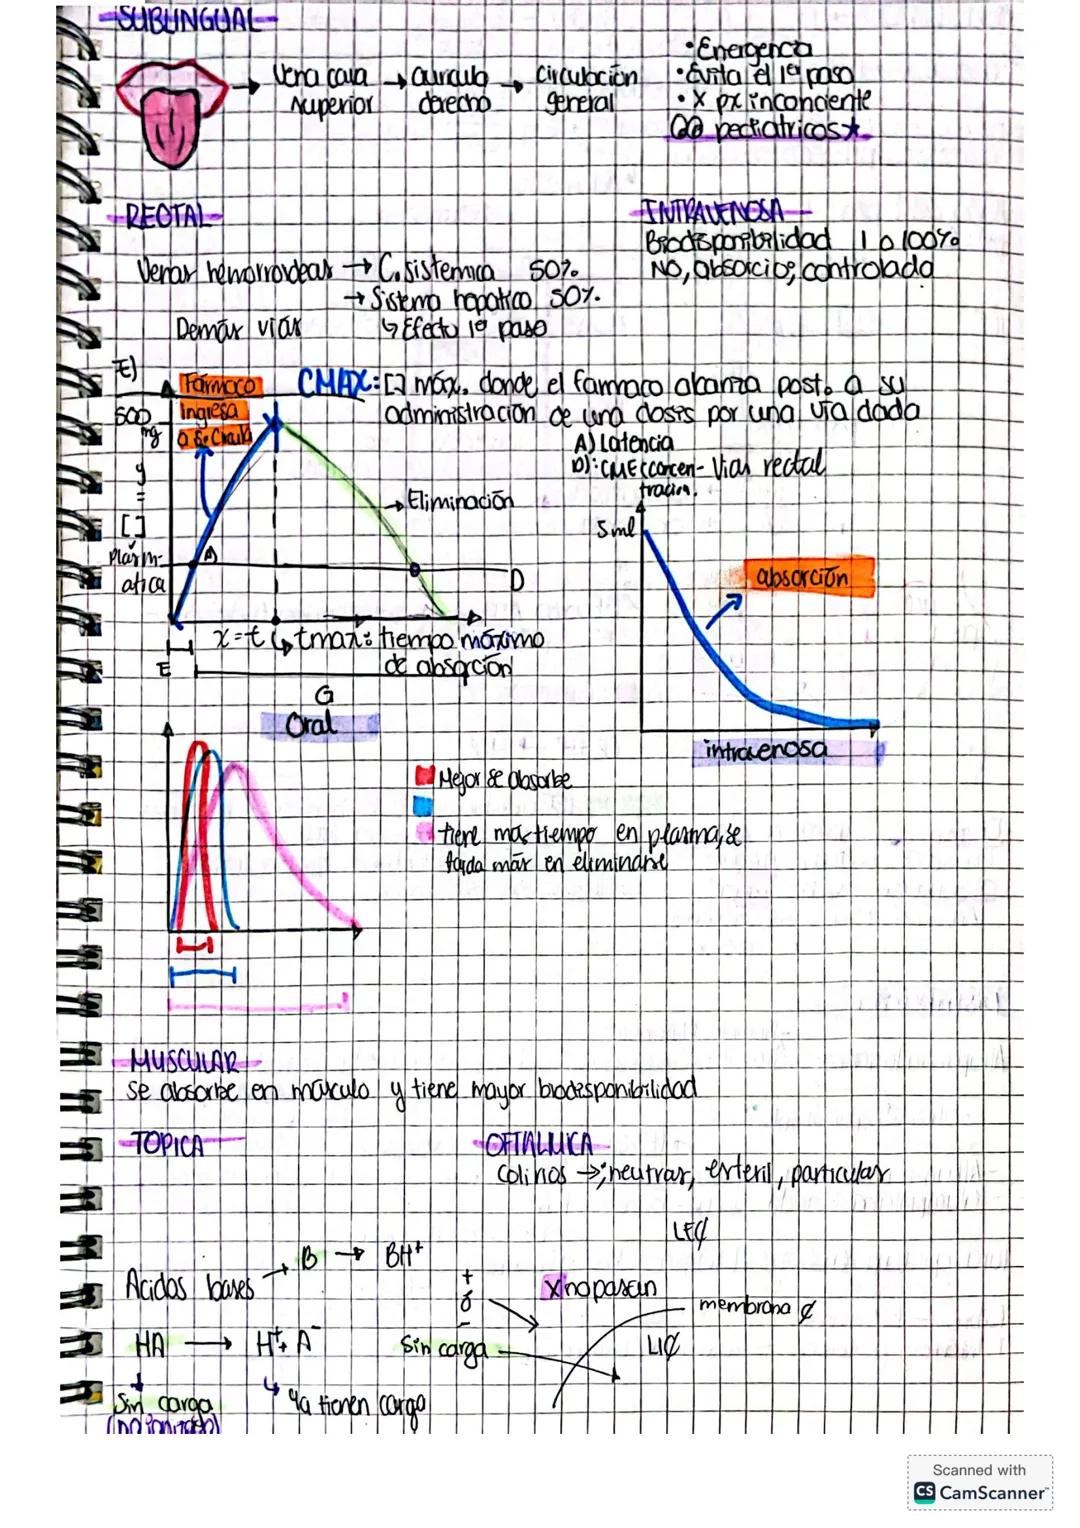 SUBLINGUAL
→ Vena cava → auricula → Circulación
superior derecho general
• Energenca
• Evita el 1er paso
• X px inconciente
pediatricos ★
RECTAL
Venas hemorroideas → C. sistemica 50%
→ Sistema hepatico 50%.
Demás vías ↳ Efecto 1er paso
INTRAVENOSA
Biodisponibilidad 1 o 100%
NO, absorcion, controlada
E)
500 mg
Fármaco
ingresa
a
CMAX: [ ] máx. donde el farmaco abanza post. a su
administración de una dosis por una vía dada
A) Latencia
D): CME (concen- Vías rectal
tración.
y
=
[ ]
Plasm-
atica
A
→ Eliminación
D
x = t ↳ tmax: tiempo máximo
de absorción
E
G
5 ml
absorción
intravenosa
Oral
Mejor se absorbe
tiene mas tiempo en plasma, se
tarda más en eliminarse
MUSCULAR
Se absorbe en músculo y tiene mayor biodisponibilidad
TOPICA
OFTALMICA
Colirios → ; neutras, esteril, particulas
LE¢
Acidos bases → B → BH+
HA → H+ + A-
Sin carga
(no ionizado)
↳ Ya tienen carga
+
o
-
Sin carga
X no pasan
membrana ¢
LI¢
Scanned with
CS CamScanner